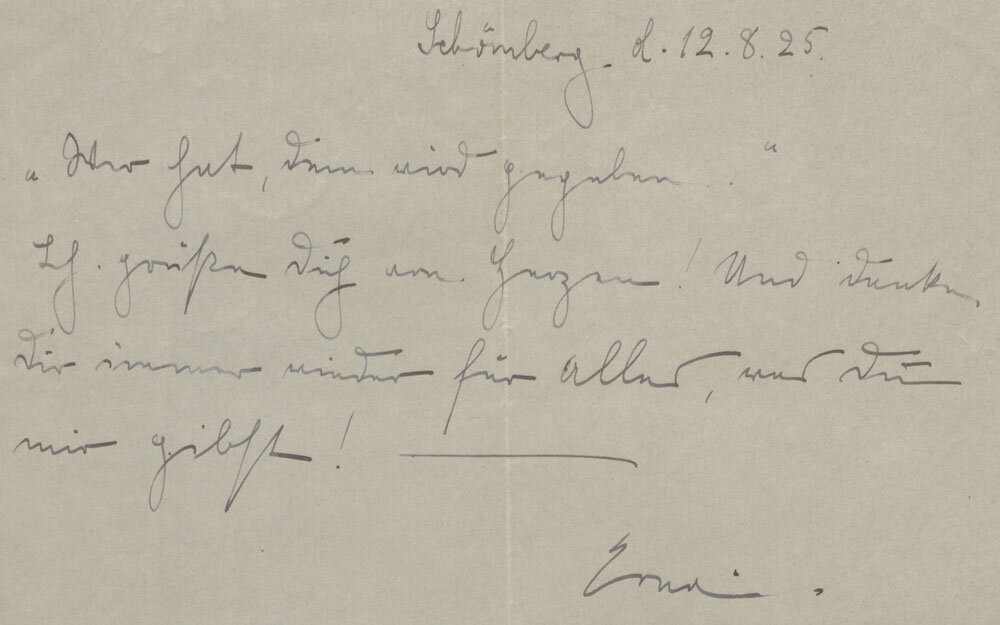 Schömberg. d. 12.8.25.
„Wer hat, dem wird gegeben..“
Ich grüße Dich von Herzen! Und danke
Dir immer wieder für alles, was Du
mir gibst!
Erna.